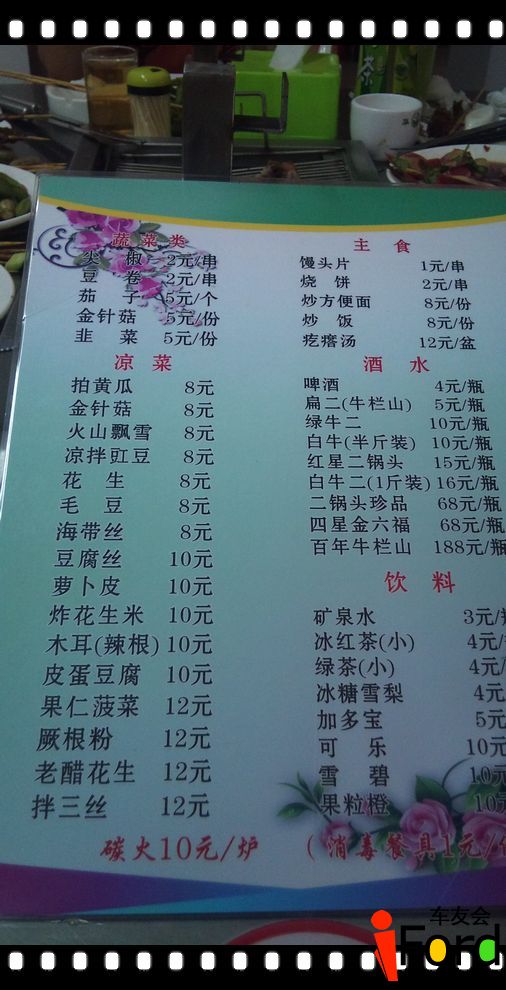 蔬菜类
尖椒 2元/串
豆卷 2元/串
茄子 5元/个
金针菇 5元/份
韭菜 5元/份
凉菜
拍黄瓜 8元
金针菇 8元
火山飘雪 8元
凉拌豇豆 8元
花生 8元
毛豆 8元
海带丝 8元
豆腐丝 10元
萝卜皮 10元
炸花生米 10元
木耳(辣根) 10元
皮蛋豆腐 10元
果仁菠菜 12元
厥根粉 12元
老醋花生 12元
拌三丝 12元
主食
馒头片 1元/串
烧饼 2元/串
炒方便面 8元/份
炒饭 8元/份
疙瘩汤 12元/盆
酒水
啤酒 4元/瓶
扁二(牛栏山) 5元/瓶
绿牛二 10元/瓶
白牛(半斤装) 10元/瓶
红星二锅头 15元/瓶
白牛二(1斤装) 16元/瓶
二锅头珍品 68元/瓶
四星金六福 68元/瓶
百年牛栏山 188元/瓶
饮料
矿泉水 3元/
冰红茶(小) 4元/
绿茶(小) 4元/
冰糖雪梨 4元
加多宝 5元
可乐 10元
雪碧 10元
果粒橙 10元
碳火10元/炉 (消毒餐具1元/
车友会
iFord